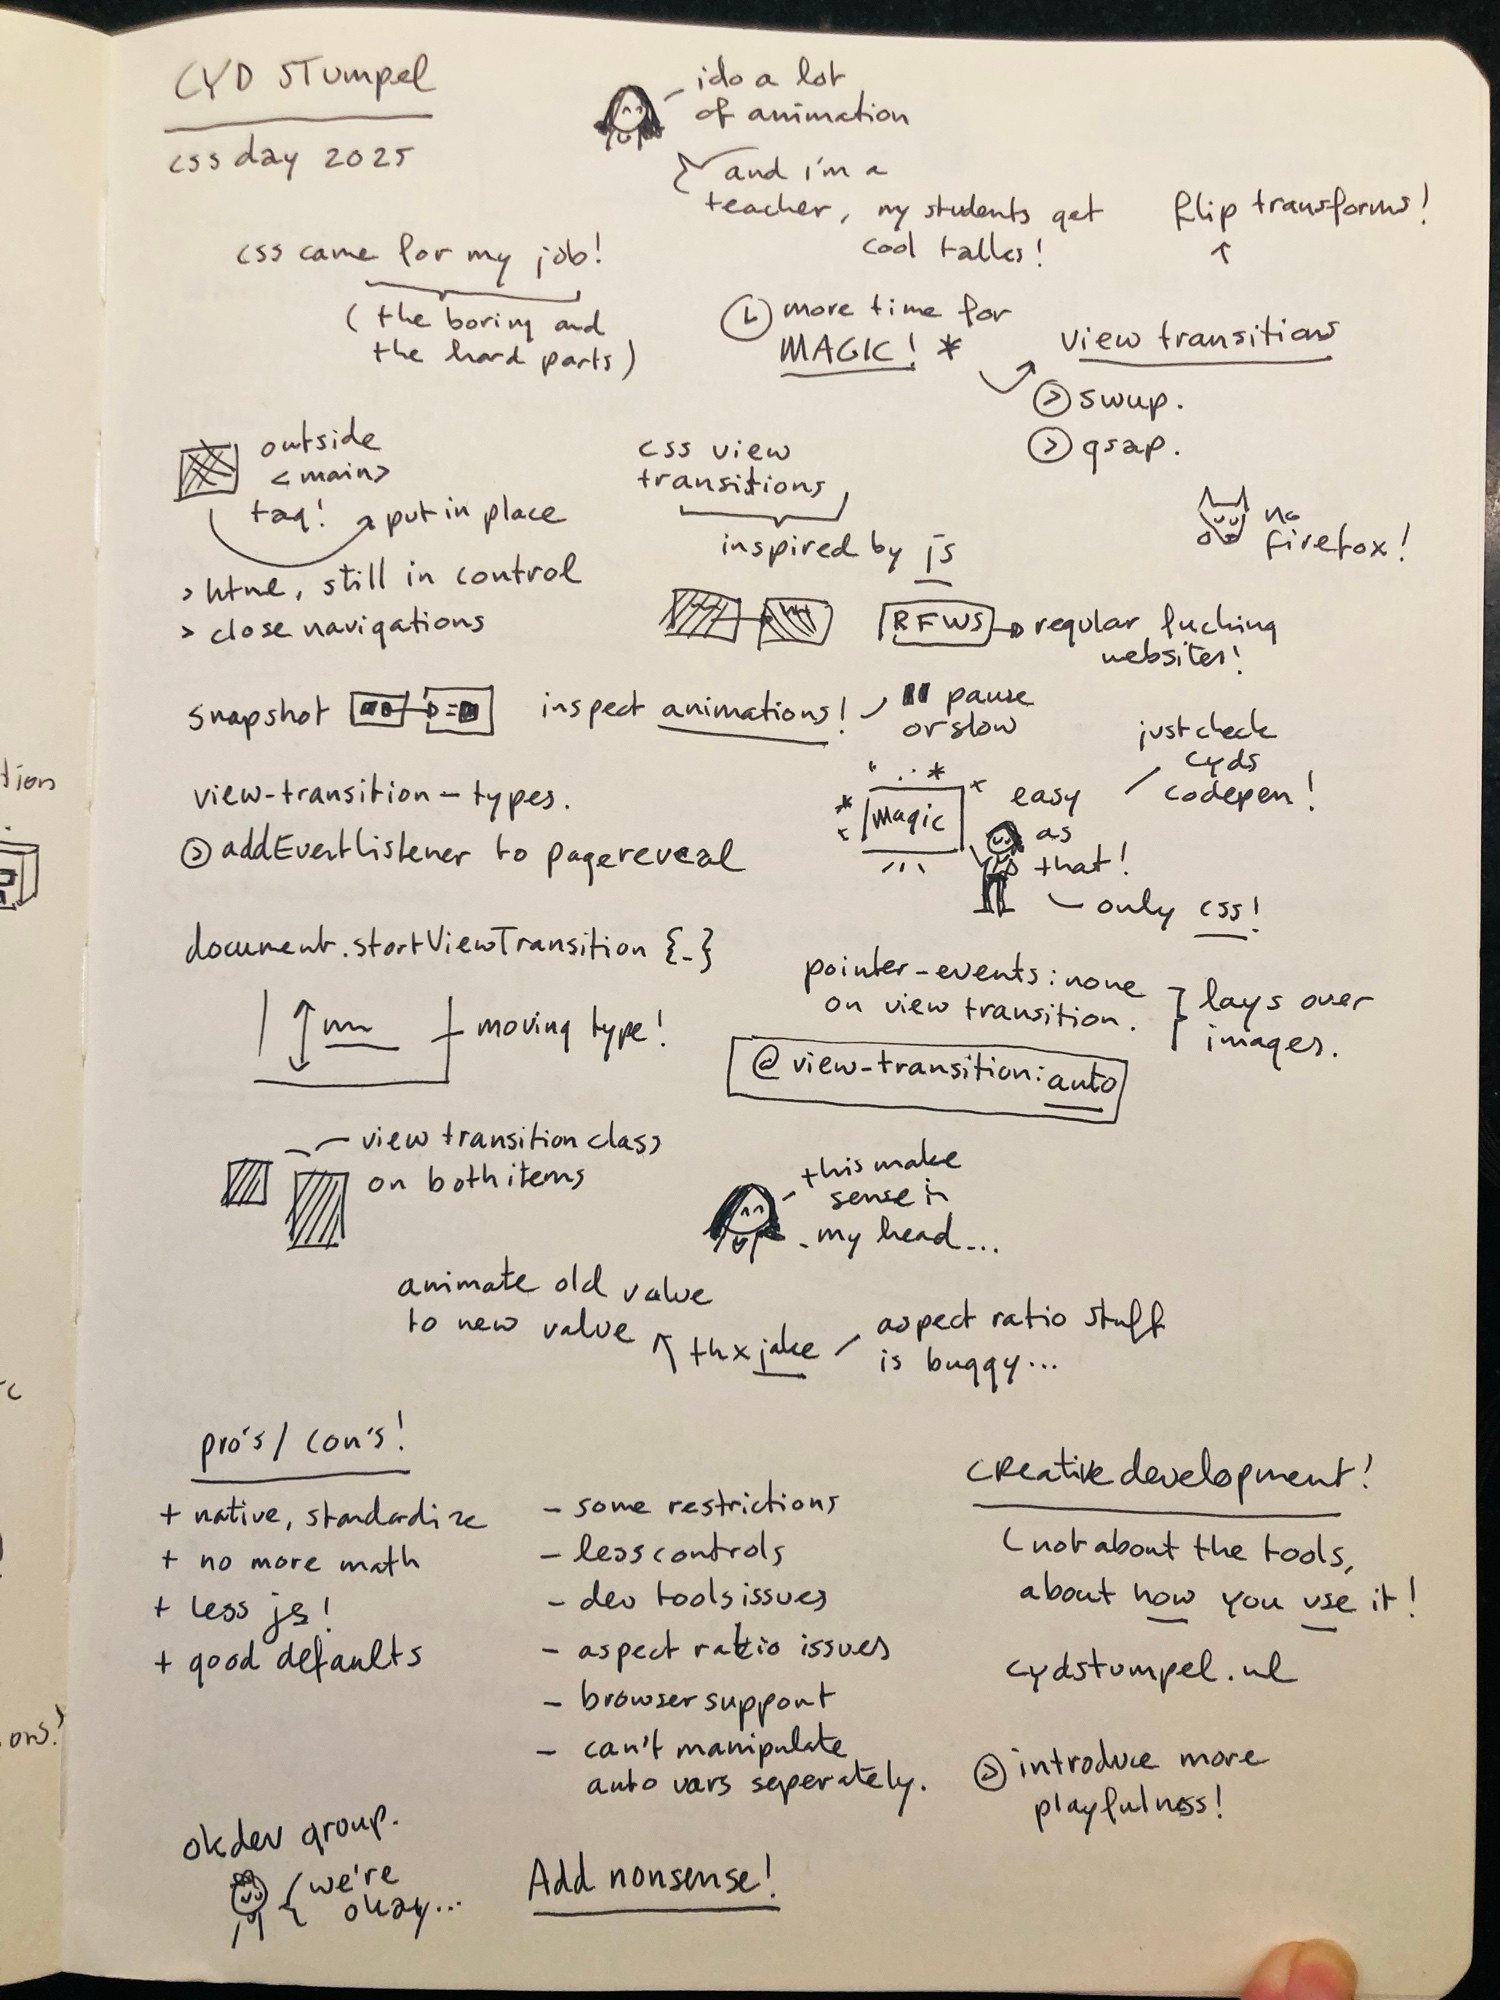 CYD STUMPEL
css day 2025
i do a lot
of animation
and i'm a
teacher, my students get
cool talks!
flip transforms!
css came for my job!
(the boring and
the hard parts)
more time for
MAGIC! *
view transitions
> swup.
> gsap.
outside
<main>
tag!
put in place
> html, still in control
> close navigations
css view
transitions
inspired by js
no
firefox!
RFWS
regular fucking
websites!
snapshot
inspect animations!
pause
or slow
just check
cyds
codepen!
view-transition-types.
> addEventListener to pagereveal
magic
easy
as
that!
only css!
document.startViewTransition {_}
moving type!
pointer-events:none
on view transition.
lays over
images.
@view-transition:auto
view transition class
on both items
this make
sense in
my head...
animate old value
to new value
thx jake
aspect ratio stuff
is buggy...
pro's / con's!
+ native, standardize
+ no more math
+ less js!
+ good defaults
- some restrictions
- less controls
- dev tools issues
- aspect ratio issues
- browser support
- can't manipulate
auto vars seperately.
creative development!
not about the tools,
about how you use it!
cydstumpel.nl
> introduce more
playfulness!
okdev group.
we're
okay...
Add nonsense!
tion
ons!